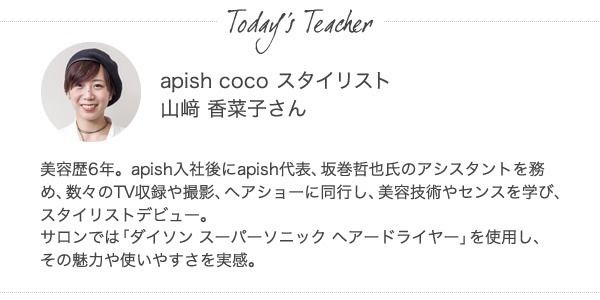 Today's Teacher
apish coco スタイリスト
山﨑 香菜子さん
美容歴6年。apish入社後にapish代表、坂巻哲也氏のアシスタントを務
め、数々のTV収録や撮影、ヘアショーに同行し、美容技術やセンスを学び、
スタイリストデビュー。
サロンでは「ダイソン スーパーソニック ヘアードライヤー」を使用し、
その魅力や使いやすさを実感。